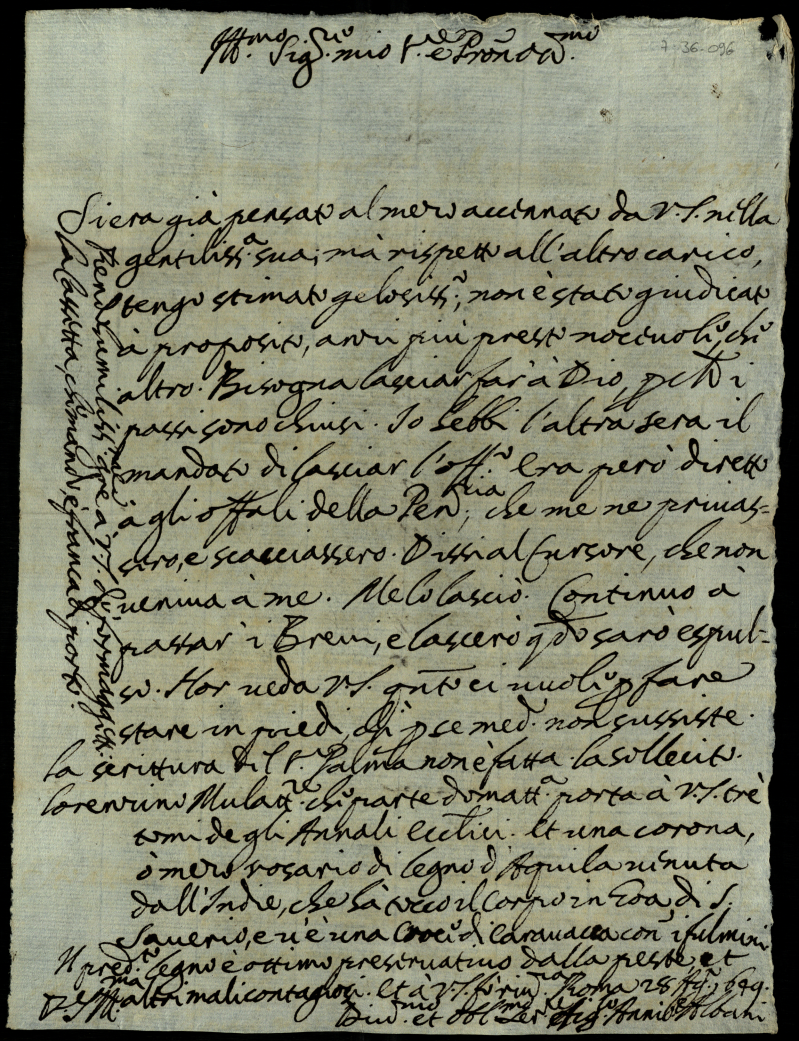 7-36-096
Ill.mo Sig.re mio S.re e Pron Oss.mo
Si era già pensato al mezzo accennato da V.S. nella
gentiliss.a sua; mà rispetto all'altro carico,
stimato gelosiss.o, non è stato giudicato
à proposito, anzi più presto nocevole, che
altro. Bisogna lasciar far à Dio, i
passi sono chiusi. Io hebbi l'altra sera il
mandato di lasciar l'off.o era però diretto
a gli offali della Pen.ria, che me ne privas-
sero, e scacciassero. Dissi al Cursore, che non
veniva à me. Me lo lasciò. Continuo à
passar i Brevi, e lascerò q.do sarò espul-
so. Hor veda V.S. q.nto ci vuole p fare
stare in piedi, chi p se med.o non sussiste.
la scrittura del S.r Palma non è fatta. la sollecito.
Lorenzino Mulatt.e che parte domatt.a porta à V.S. trè
tomi de gli Annali Eccl.ici. et una corona,
ò mezo rosario di legno d'Aquila venuta
dall'Indie, che hà tocco il Corpo in Goa di S.
Saverio, e v'è una Croce di Caravacca con i fulmini
Il pred.to legno è ottimo preservativo dalla peste, et
altri mali contagiosi. et à V.S. Roma 28 Ag.o 649.
D V.S. Ill.ma
Div.mo et Obl.mo Ser.e Annib.e Albani
Rendo humiliss.e gre à V.S. de formaggetti
la cassetta, che mandò, è franca di porto.